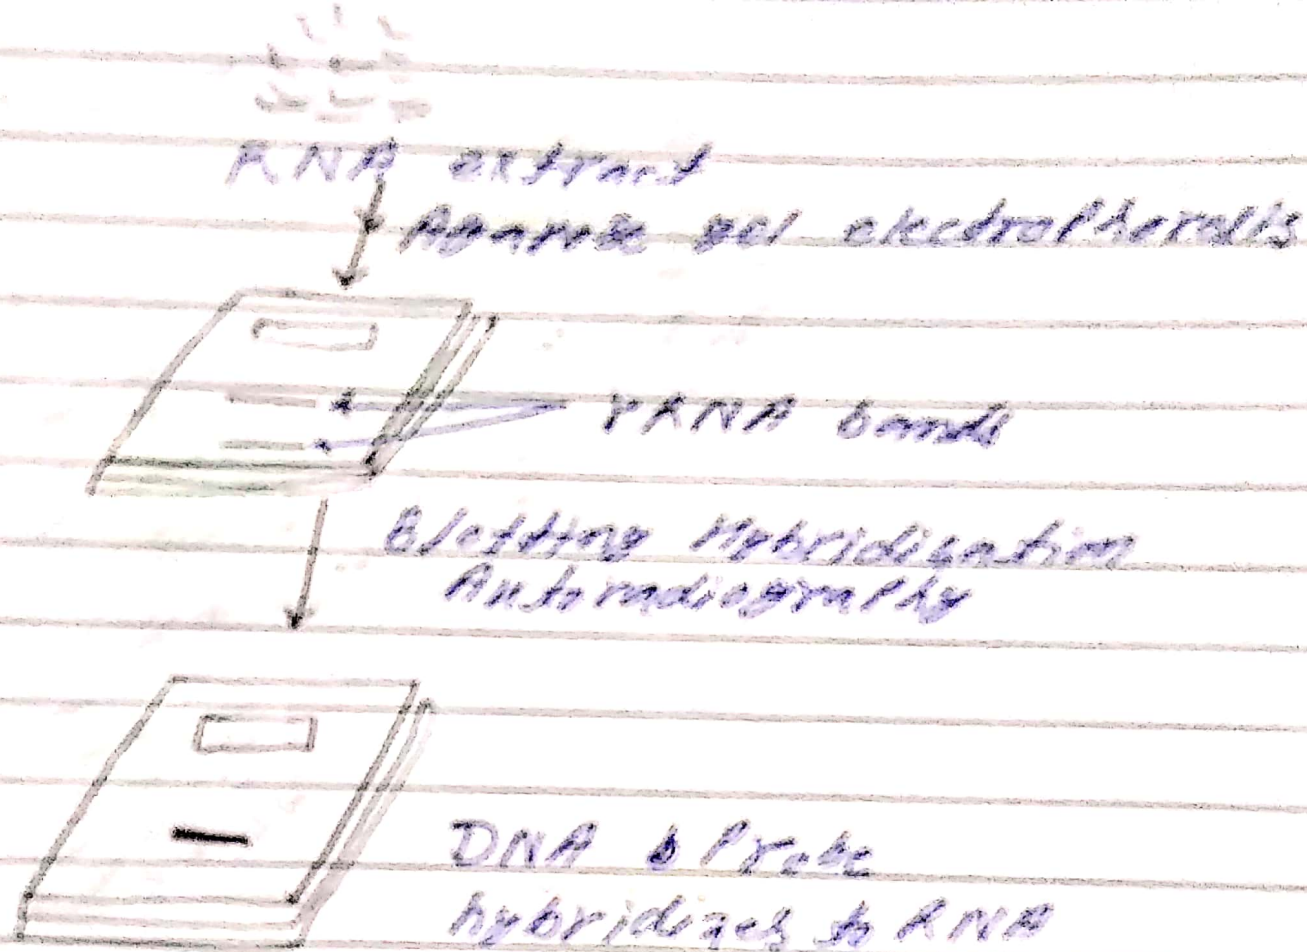 RNA extract
Agarose gel electrophoresis
rRNA bands
Blotting Hybridisation
Autoradiography
DNA Probe
hybridizes to RNA